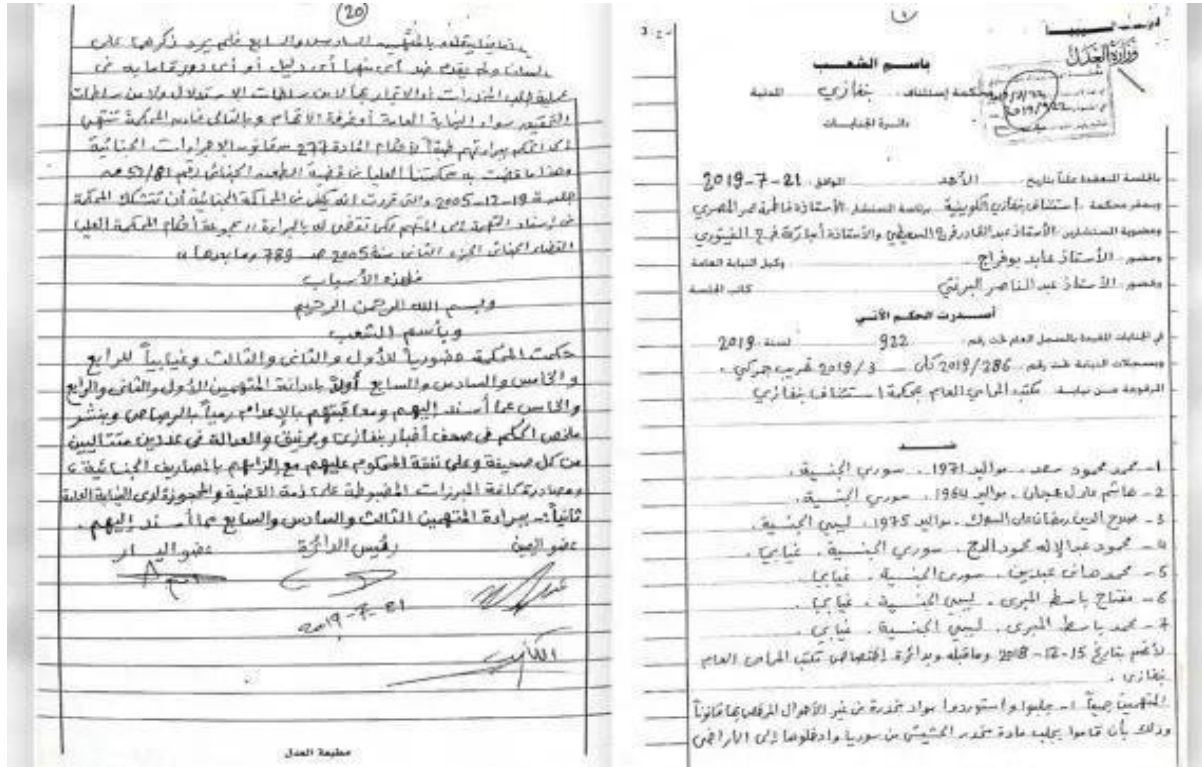 وزارة العدل
باسم الشعب
محكمة إستئناف بنغازي المدنية
دائرة الجنايات
بالجلسة المنعقدة علناً بتاريخ الأحد الموافق 21-7-2019
وبمقر محكمة استئناف بنغازي الكلوينية برئاسة المستشار الأستاذة فاطمة عمر المصري
وعضوية المستشارين الأستاذ عبد القادر فرج والأستاذة فرج الفيتوري
وحضور الأستاذ عابد بوفراج وكيل النيابة العامة
وحضور الأستاذ عبد الناصر البرغثي كاتب الجلسة
أصدرت الحكم الآتي
في الجنايات المقيدة بالسجل العام تحت رقم 922 لسنة 2019
وبسجلات النيابة تحت رقم 2019/286 كلي 2019/3 تهريب جمركي .
المرفوعة من نيابة مكتب المحامي العام بمحكمة استئناف بنغازي
ضد
1- محمد محمود سعد . مواليد 1971 . سوري الجنسية .
2- هاشم عادل عجان . مواليد 1964 . سوري الجنسية .
3- صلاح الدين رمضان مواليد 1975 . ليبي الجنسية .
4- محمود عبد الإله محمود الدج . سوري الجنسية . غيابي .
5- محمد هاني عبدين . سوري الجنسية . غيابي .
6- مفتاح باسط المبري . ليبي الجنسية . غيابي .
7- محمد باسط المبري . ليبي الجنسية . غيابي .
لأنهم بتاريخ 15-12-2018 وماقبله وبدائرة اختصاص مكتب المحامي العام
بنغازي .
المتهمين جميعاً 1- جلبوا واستوردوا مواد مخدرة في غير الأحوال المرخص بها قانوناً
وذلك بأن قاموا بجلب مادة مخدر الحشيش من سوريا وادخلوها إلى الأراضي
(20)
بالمتهمين السادس والسابع فلم يرد ذكرهما على
ولم يقدم ضد أي منهما أي دليل أو أي دور قاما به في
عملية جلب المخدرات أو الاتجار بها لا من سلطات الاستدلال ولا من سلطات
التحقيق سواء النيابة العامة أو غرفة الاتهام وبالتالي فإن المحكمة تنتهي
إلى الحكم ببراءتهم طبقاً لأحكام المادة 277 من قانون الإجراءات الجنائية
وهذا ما قضت به محكمتنا العليا في قضية الطعن الجنائي رقم 52/81
جلسة 19-12-2005 والتي قررت انه يكفي في المحاكمة الجنائية أن تتشكك المحكمة
في إسناد التهمة إلى المتهم لكي تقضي له بالبراءة (( مجموعة أحكام المحكمة العليا
القضاء الجنائي الجزء الثاني سنة 2005 صـ 789 وما بعدها ))
فلهذه الأسباب
وبسم الله الرحمن الرحيم
وبأسم الشعب
حكمت المحكمة حضورياً للأول والثاني والثالث وغيابياً للرابع
والخامس والسادس والسابع أولاً بإدانة المتهمين الأول والثاني والرابع
والخامس عما أسند إليهم ومعاقبتهم بالإعدام رمياً بالرصاص وبنشر
ملخص الحكم في صحف أخبار بنغازي وبرنيق والعدالة في عددين متتاليين
من كل صحيفة وعلى نفقة المحكوم عليهم مع إلزامهم بالمصاريف الجنائية
ومصادرة كافة المبرزات المضبوطة على ذمة القضية والمحجوزة لدى النيابة العامة
ثانياً :- ببراءة المتهمين الثالث والسادس والسابع مما أسند إليهم .
عضو اليمين رئيس الدائرة عضو اليسار
21-7-2019
الكاتب
مطبعة العدل